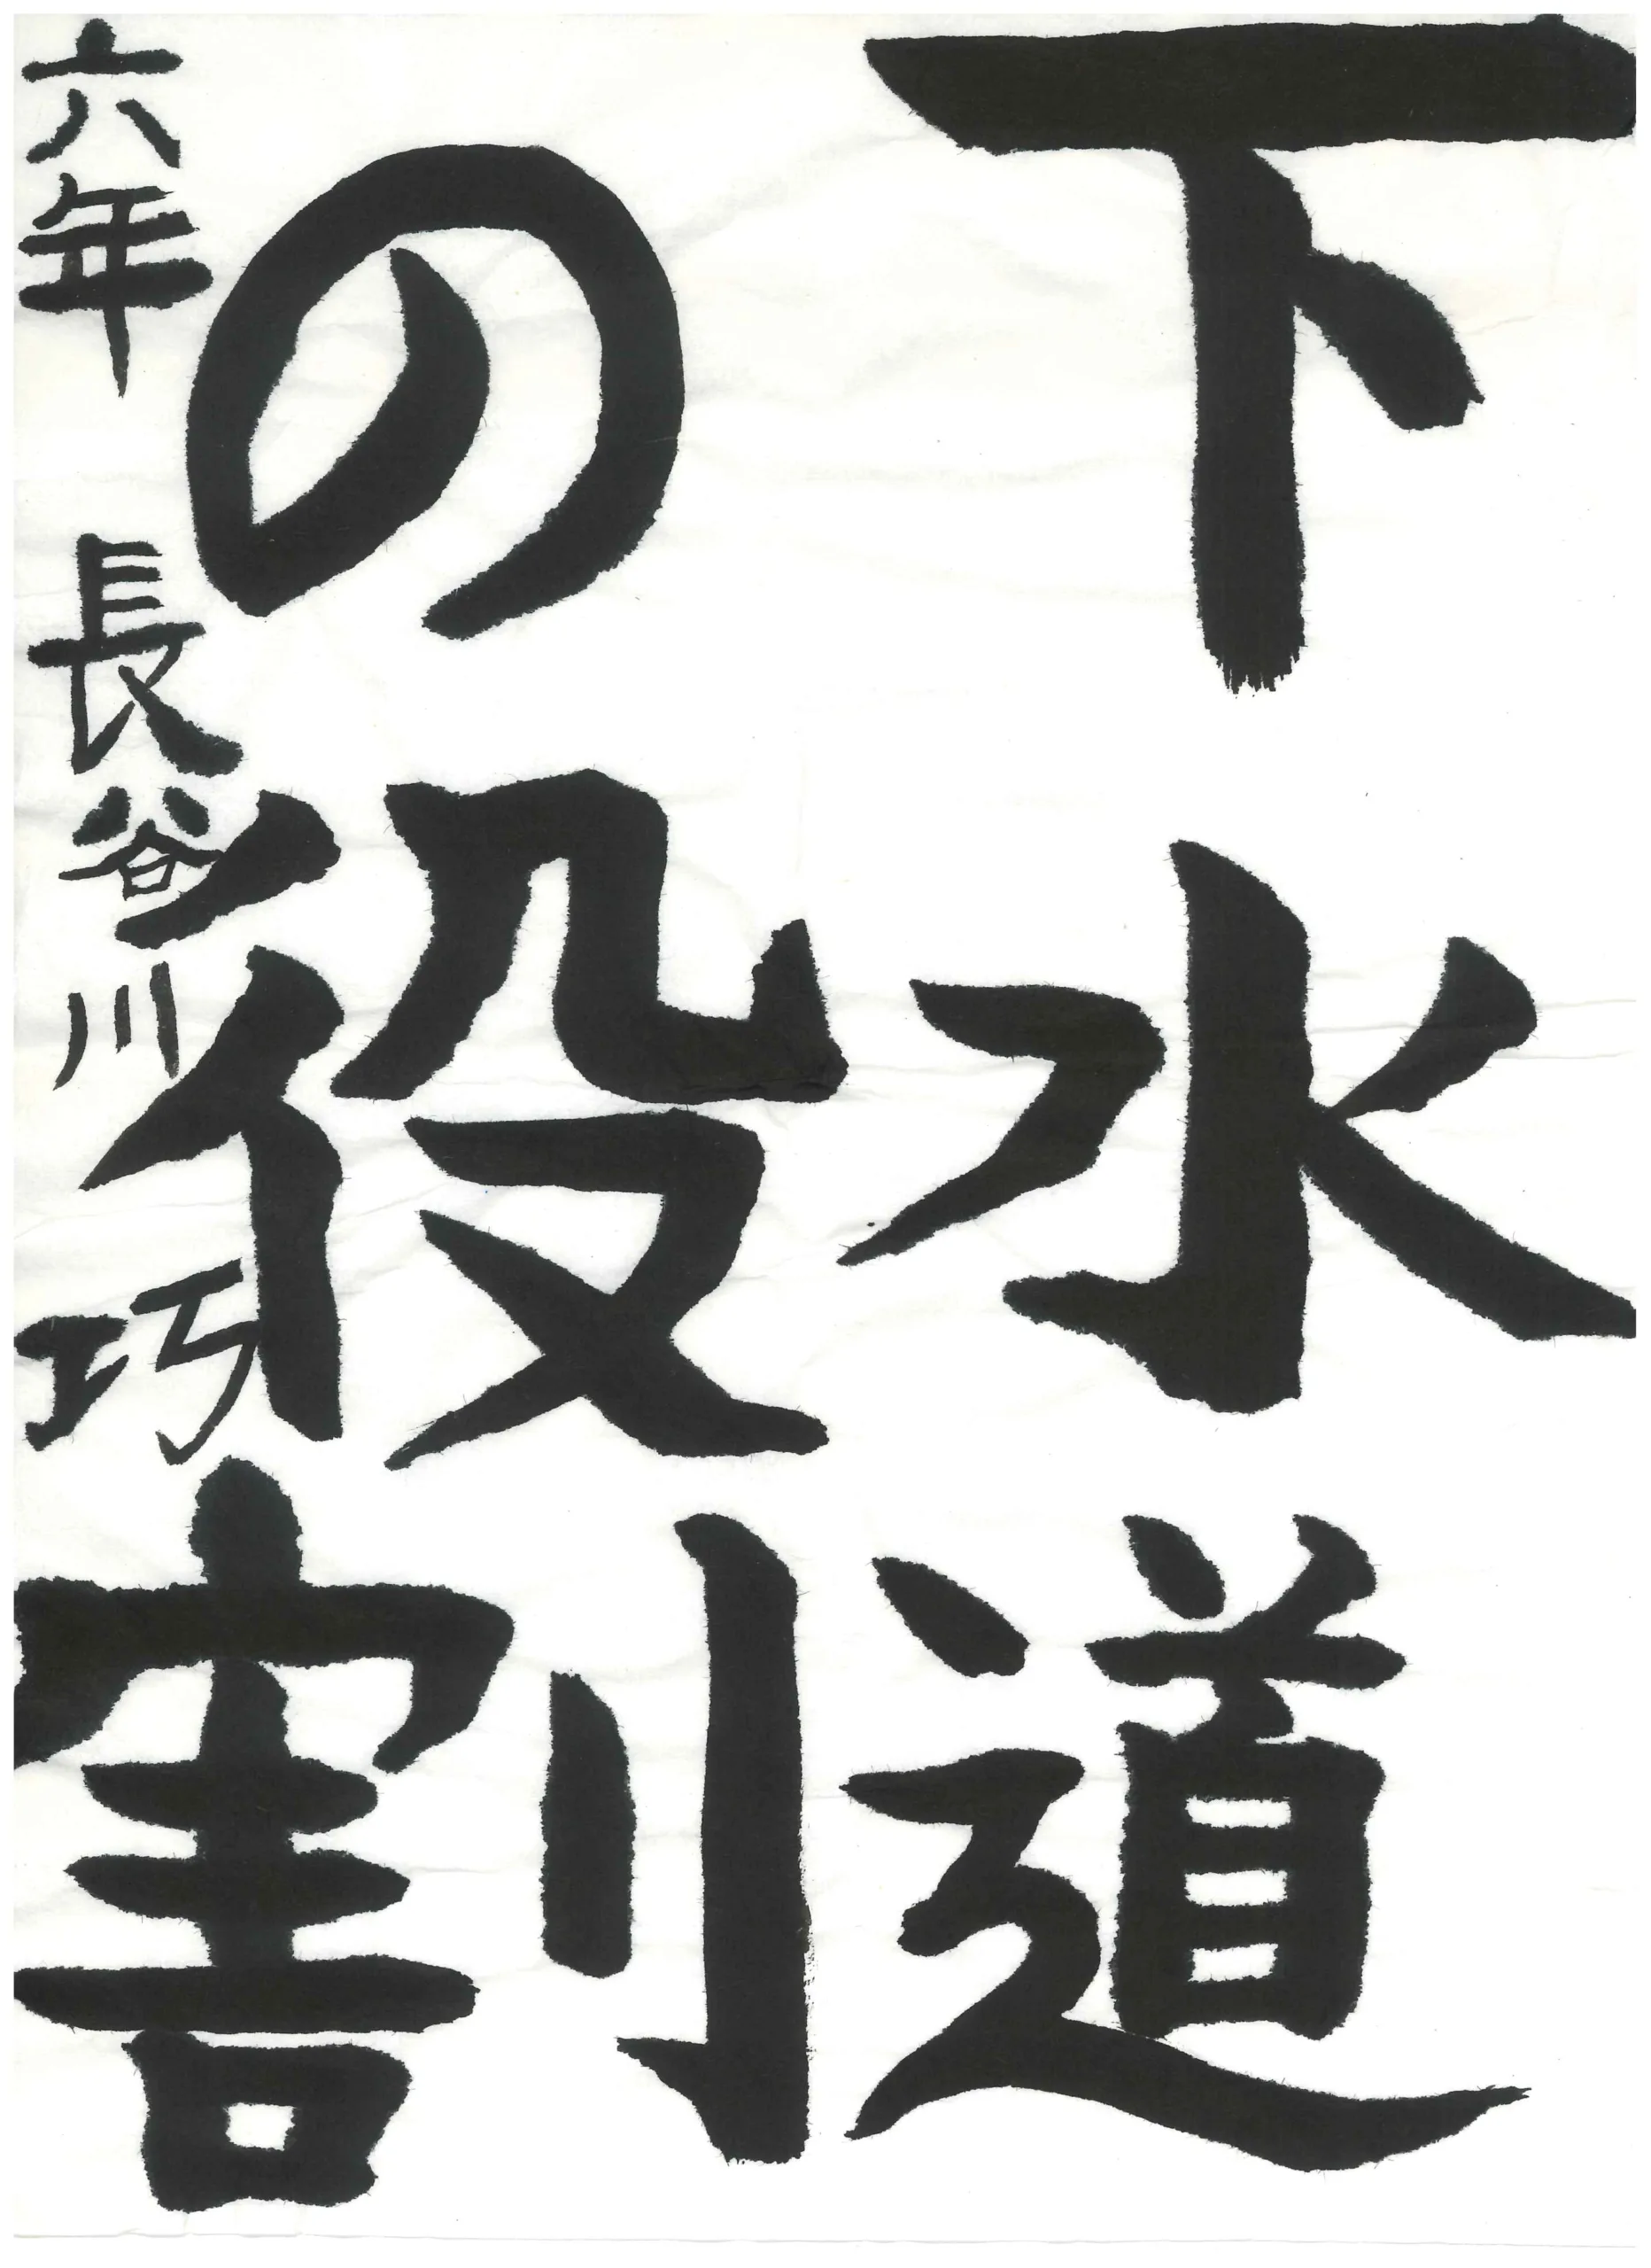 下水道
の役割
六年 長谷川 巧